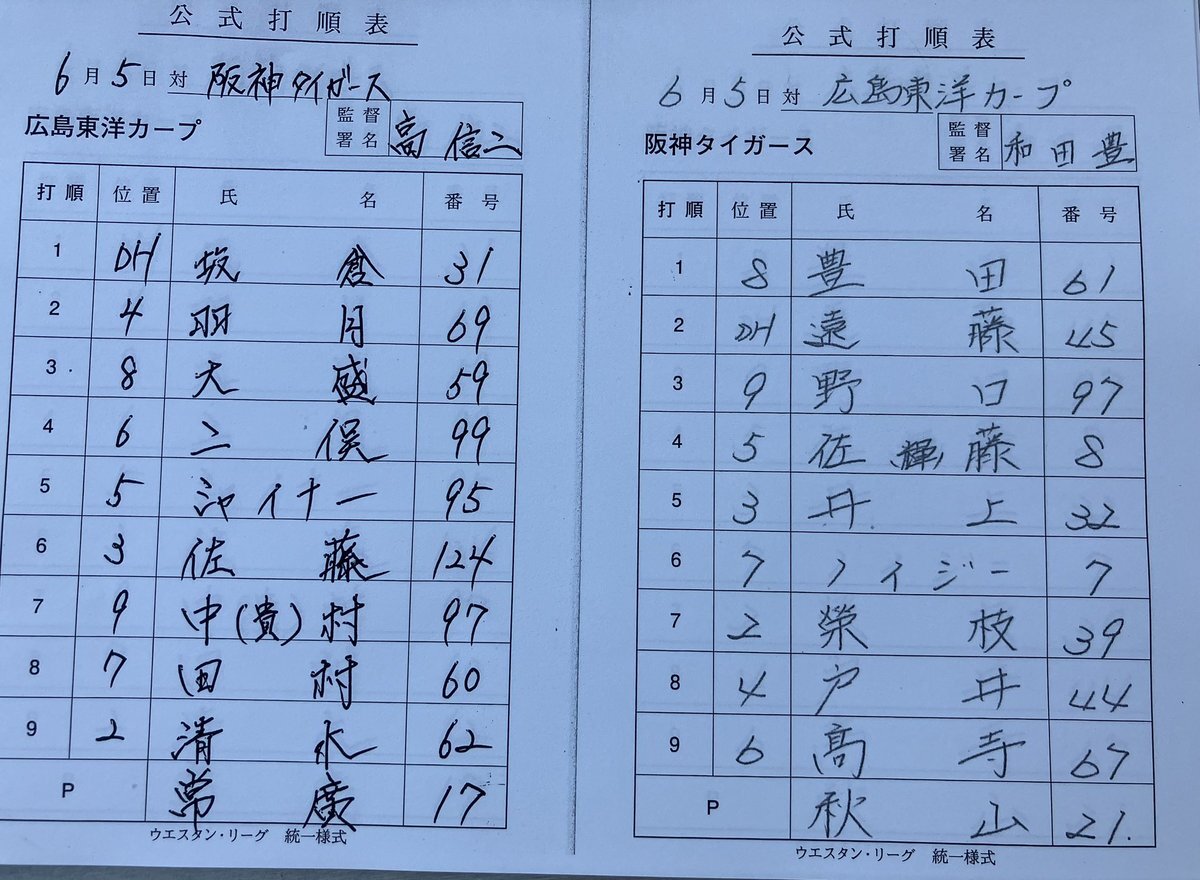 公式打順表
6月5日対 阪神タイガース
広島東洋カープ 監督署名 高 信二
打順 位置 氏名 番号
1 DH 坂倉 31
2 4 羽月 69
3 8 大盛 59
4 6 二俣 99
5 5 シャイナー 95
6 3 佐藤 124
7 9 中(貴)村 97
8 7 田村 60
9 2 清水 62
P 常廣 17
ウエスタン・リーグ 統一様式
公式打順表
6月5日対 広島東洋カープ
阪神タイガース 監督署名 和田豊
打順 位置 氏名 番号
1 8 豊田 61
2 DH 遠藤 45
3 9 野口 97
4 5 佐(輝)藤 8
5 3 井上 32
6 7 ノイジー 7
7 2 榮枝 39
8 4 戸井 44
9 6 髙寺 67
P 秋山 21.
ウエスタン・リーグ 統一様式